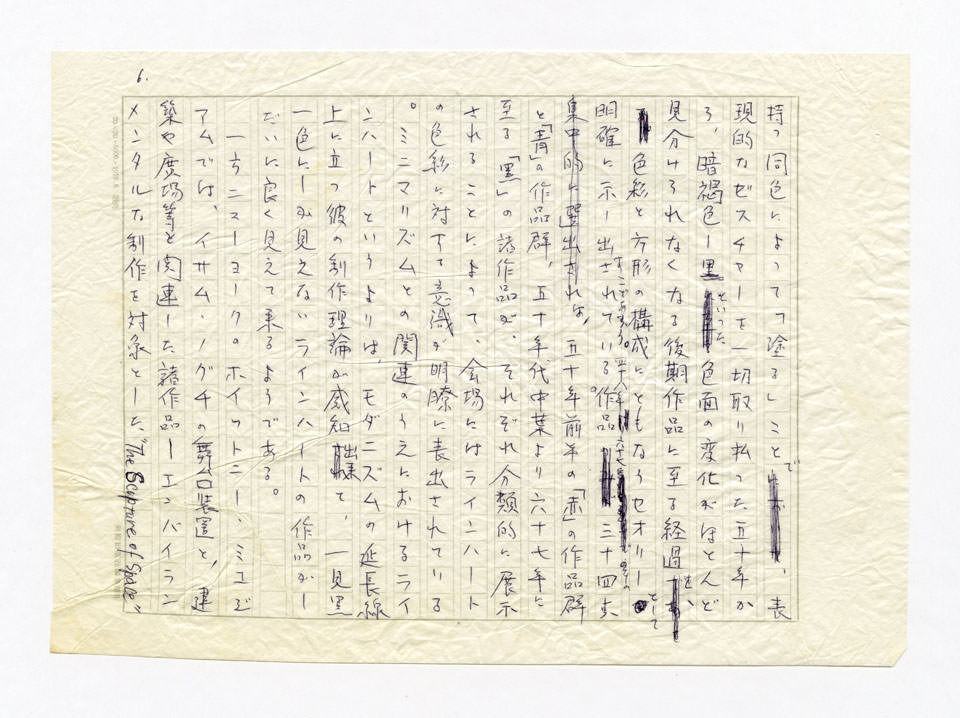 6.
持つ同色によって「塗る」ことで、表
現的なゼスチアーを一切取り払った五十年か
ら、暗褐色ー黒といった色面の変化がほとんど
見分けられなくなる後期作品に至る経過を、
色彩と方形の構成にともなうセオリーとして
明確に示し出されている。作品三十四点
集中的に選出されば、五十年前半の「赤」の作品群
と「青」の作品群、五十年代中葉より六十七年に
至る「黒」の諸作品が、それぞれ分類的に展示
されることによって、会場にはラインハート
の色彩に対する意識が明瞭に表出されている
。ミニマリズムとの関連のうえにおけるライ
ンハートというよりは、モダニズムの延長線
上に立つ彼の制作理論が感知出来て、一見黒
一色にしか見えないラインハートの作品がし
だいに良く見えて来るようである。
一方ニューヨークのホイットニー・ミュゼ
アムでは、イサム・ノグチの舞台装置と、建
築や広場等と関連した諸作品ーエンバイラン
メンタルな制作を対象とした"The Scupture of Space"